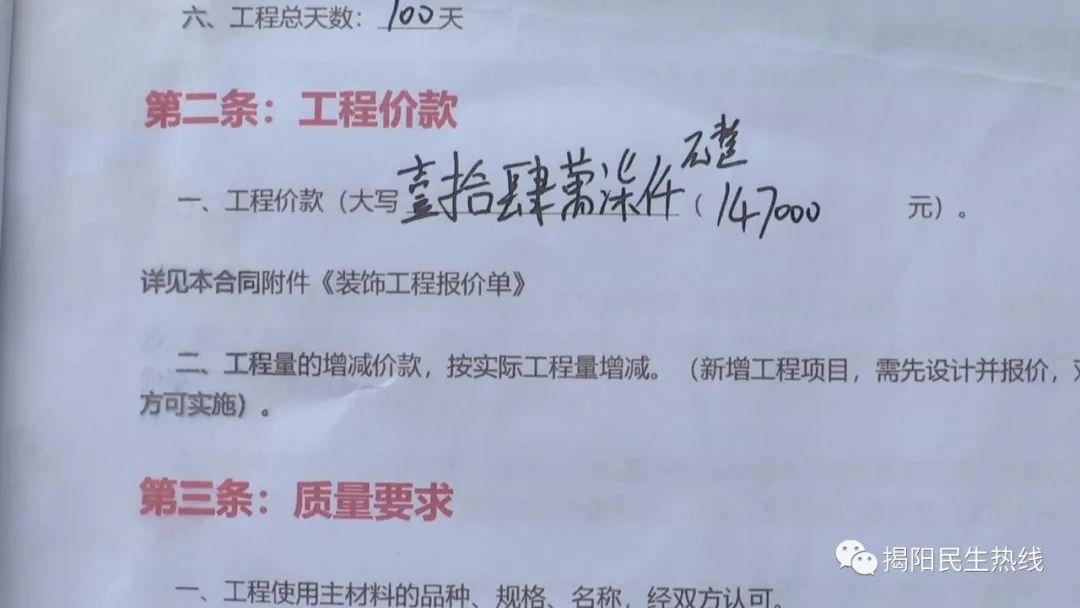 六、工程总天数：100天
第二条：工程价款
一、工程价款（大写壹拾肆萬柒仟元整（147000 元）。
详见本合同附件《装饰工程报价单》
二、工程量的增减价款，按实际工程量增减。（新增工程项目，需先设计并报价，
方可实施）。
第三条：质量要求
一、工程使用主材料的品种、规格、名称，经双方认可。
揭阳民生热线